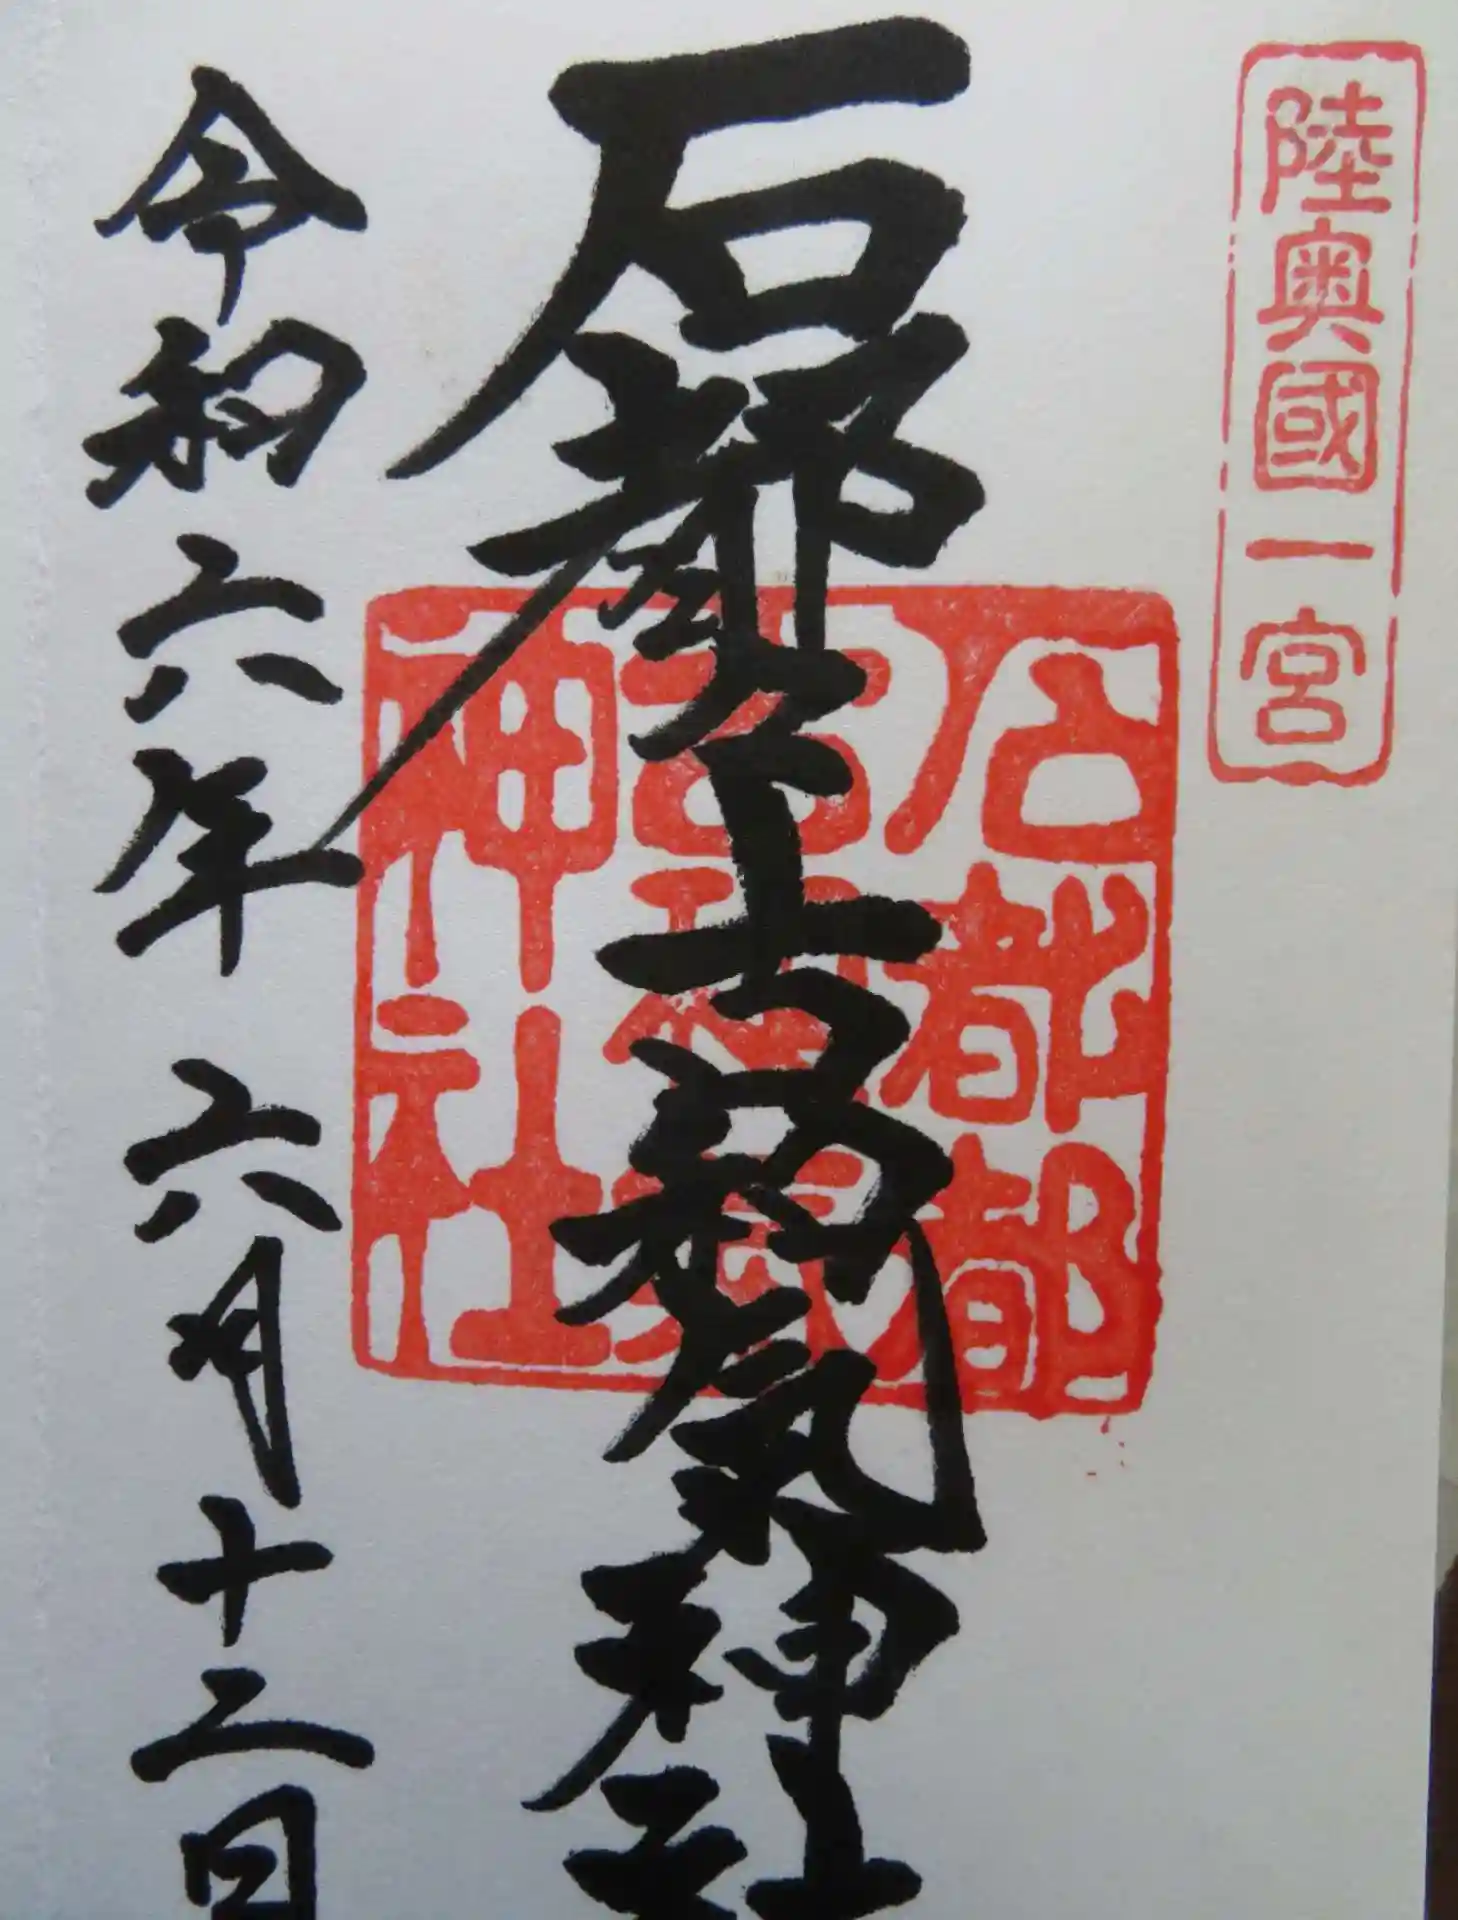 陸奥國一宮
石都々古和氣神社
石都都
古和氣
神社
令和六年六月十二日